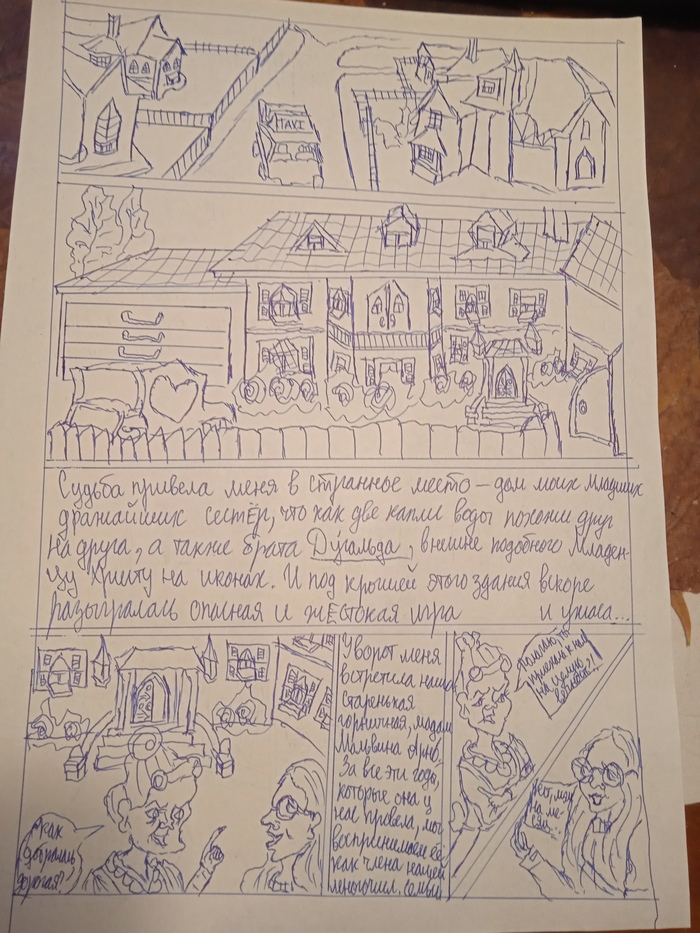 TAXI
Судьба привела меня в странное место — дом моих младших
дражайших сестёр, что как две капли воды похожи друг
на друга, а также брата Дугальда, внешне подобного Младен-
цу Христу на иконах. И под крышей этого здания вскоре
разыгралась опасная и жестокая игра и ужаса...
У ворот меня
встретила наша
старенькая
горничная, мадам
Мальвина Арно.
За все эти годы,
которые она у
нас провела, мы
воспринимаем её
как члена нашей
многочисл. семьи
Как
дорогая?
Полагаю, ты
приехала к нам
на целую
Нет, лишь
на ме-
сяц...